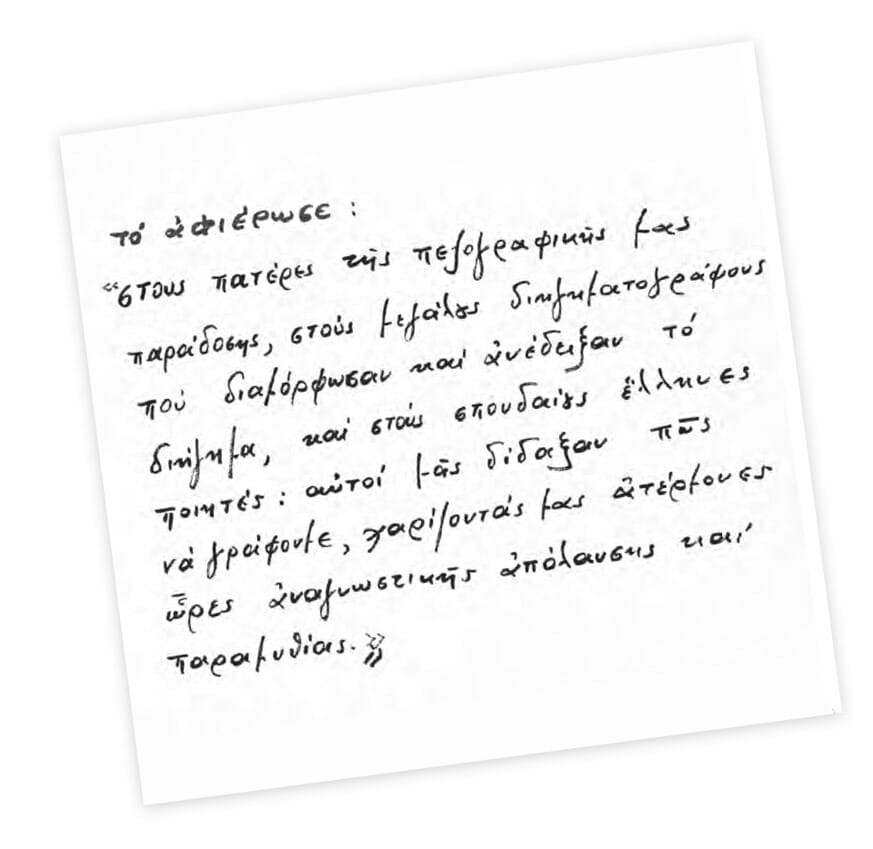 τό ἀφιέρωσε :
“στους πατέρες τῆς πεζογραφικῆς μας
παράδοσης, στούς μεγάλους διηγηματογράφους
πού διαμόρφωσαν καί ἀνέδειξαν τό
διήγημα, καί στούς σπουδαίους ἕλληνες
ποιητές : αὐτοί μᾶς δίδαξαν πῶς
νά γράφουμε, χαρίζοντάς μας ἀτέρμονες
ὧρες ἀναγνωστικῆς ἀπόλαυσης καί
παραμυθίας.»